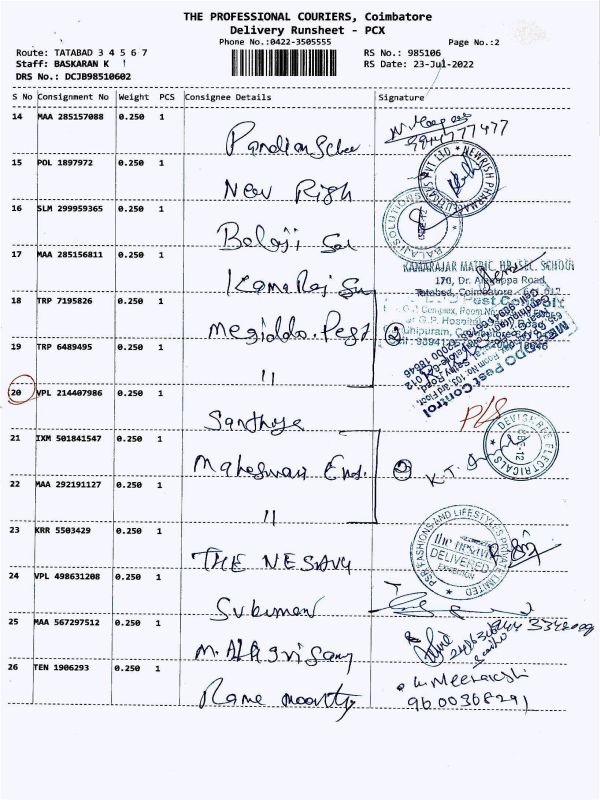 THE PROFESSIONAL COURIERS, Coimbatore
Delivery Runsheet - PCX
Phone No.:0422-3505555
Page No.:2
Route: TATABAD 3 4 5 6 7
RS No.: 985106
Staff: BASKARAN K
RS Date: 23-Jul-2022
DRS No.: DCJB98510602
S No Consignment No Weight PCS Consignee Details Signature
14 MAA 285157088 0.250 1
9944777477
15 POL 1897972 0.250 1 New Rish
NEWRISH PHARMACEUTICALS PVT LTD
16 SLM 299959365 0.250 1 Balaji
BALAJI SOLUTIONS
17 MAA 285156811 0.250 1 Kamaraj
KAMARAJAR MATRIC. HR. SEC. SCHOOL
170, Dr. Alagappa Road,
Tatabad, Coimbatore - 641 012
18 TRP 7195826 0.250 1 Megiddo. Pest
Pest Control
19 TRP 6489495 0.250 1 "
20 VPL 214407986 0.250 1 Santhya
PLS
21 IXM 501841547 0.250 1 Maheswari Ent.
DEVISHREE ELECTRICALS
K.T.
22 MAA 292191127 0.250 1 "
23 KRR 5503429 0.250 1 THE NESAVU
PSR FASHIONS AND LIFESTYLES PRIVATE LIMITED
DELIVERED
24 VPL 498631208 0.250 1 Sukumar
25 MAA 567297512 0.250 1
26 TEN 1906293 0.250 1 Rame moorthy
K. Meenakshi
9600368291